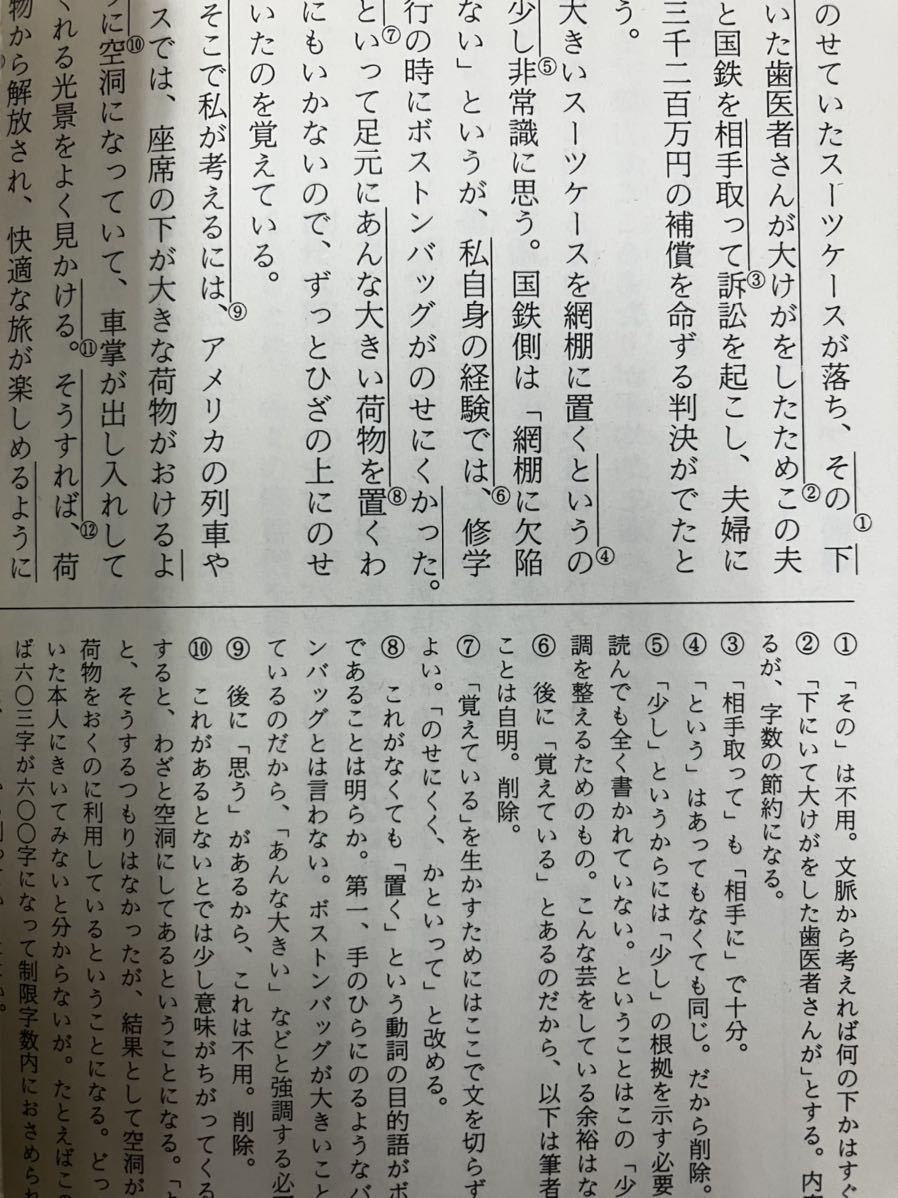 のせていたスーツケースが落ち、その①下
いた歯医者さんが大けがをしたため②この夫
と国鉄を相手取って③訴訟を起こし、夫婦に
三千二百万円の補償を命ずる判決がでたと
う。
大きいスーツケースを網棚に置くというの④
少し⑤非常識に思う。国鉄側は「網棚に欠陥
ない」というが、私自身の経験では、⑥修学
行の時にボストンバッグがのせにくかった。
⑦といって足元にあんな大きい荷物を⑧置くわ
にもいかないので、ずっとひざの上にのせ
いたのを覚えている。
そこで私が考えるには、⑨アメリカの列車や
スでは、座席の下が大きな荷物がおけるよ
うに⑩空洞になっていて、車掌が出し入れして
くれる光景をよく見かける。⑪そうすれば、⑫荷
物から解放され、快適な旅が楽しめるように
① 「その」は不用。文脈から考えれば何の下かはすぐ
② 「下にいて大けがをした歯医者さんが」とする。内
るが、字数の節約になる。
③ 「相手取って」も「相手に」で十分。
④ 「という」はあってもなくても同じ。だから削除。
⑤ 「少し」というからには「少し」の根拠を示す必要
読んでも全く書かれていない。ということはこの「少
調を整えるためのもの。こんな芸をしている余裕はな
⑥ 後に「覚えている」とあるのだから、以下は筆者
ことは自明。削除。
⑦ 「覚えている」を生かすためにはここで文を切らず
よい。「のせにくく、かといって」と改める。
⑧ これがなくても「置く」という動詞の目的語がボ
であることは明らか。第一、手のひらにのるようなバ
ンバッグとは言わない。ボストンバッグが大きいこと
ているのだから、「あんな大きい」などと強調する必
⑨ 後に「思う」があるから、これは不用。削除。
⑩ これがあるとないとでは少し意味がちがってくる
すると、わざと空洞にしてあるということになる。「
と、そうするつもりはなかったが、結果として空洞が
荷物をおくのに利用しているということになる。どっ
いた本人にきいてみないと分からないが。たとえばこの
ば六〇三字が六〇〇字になって制限字数内におさめられ